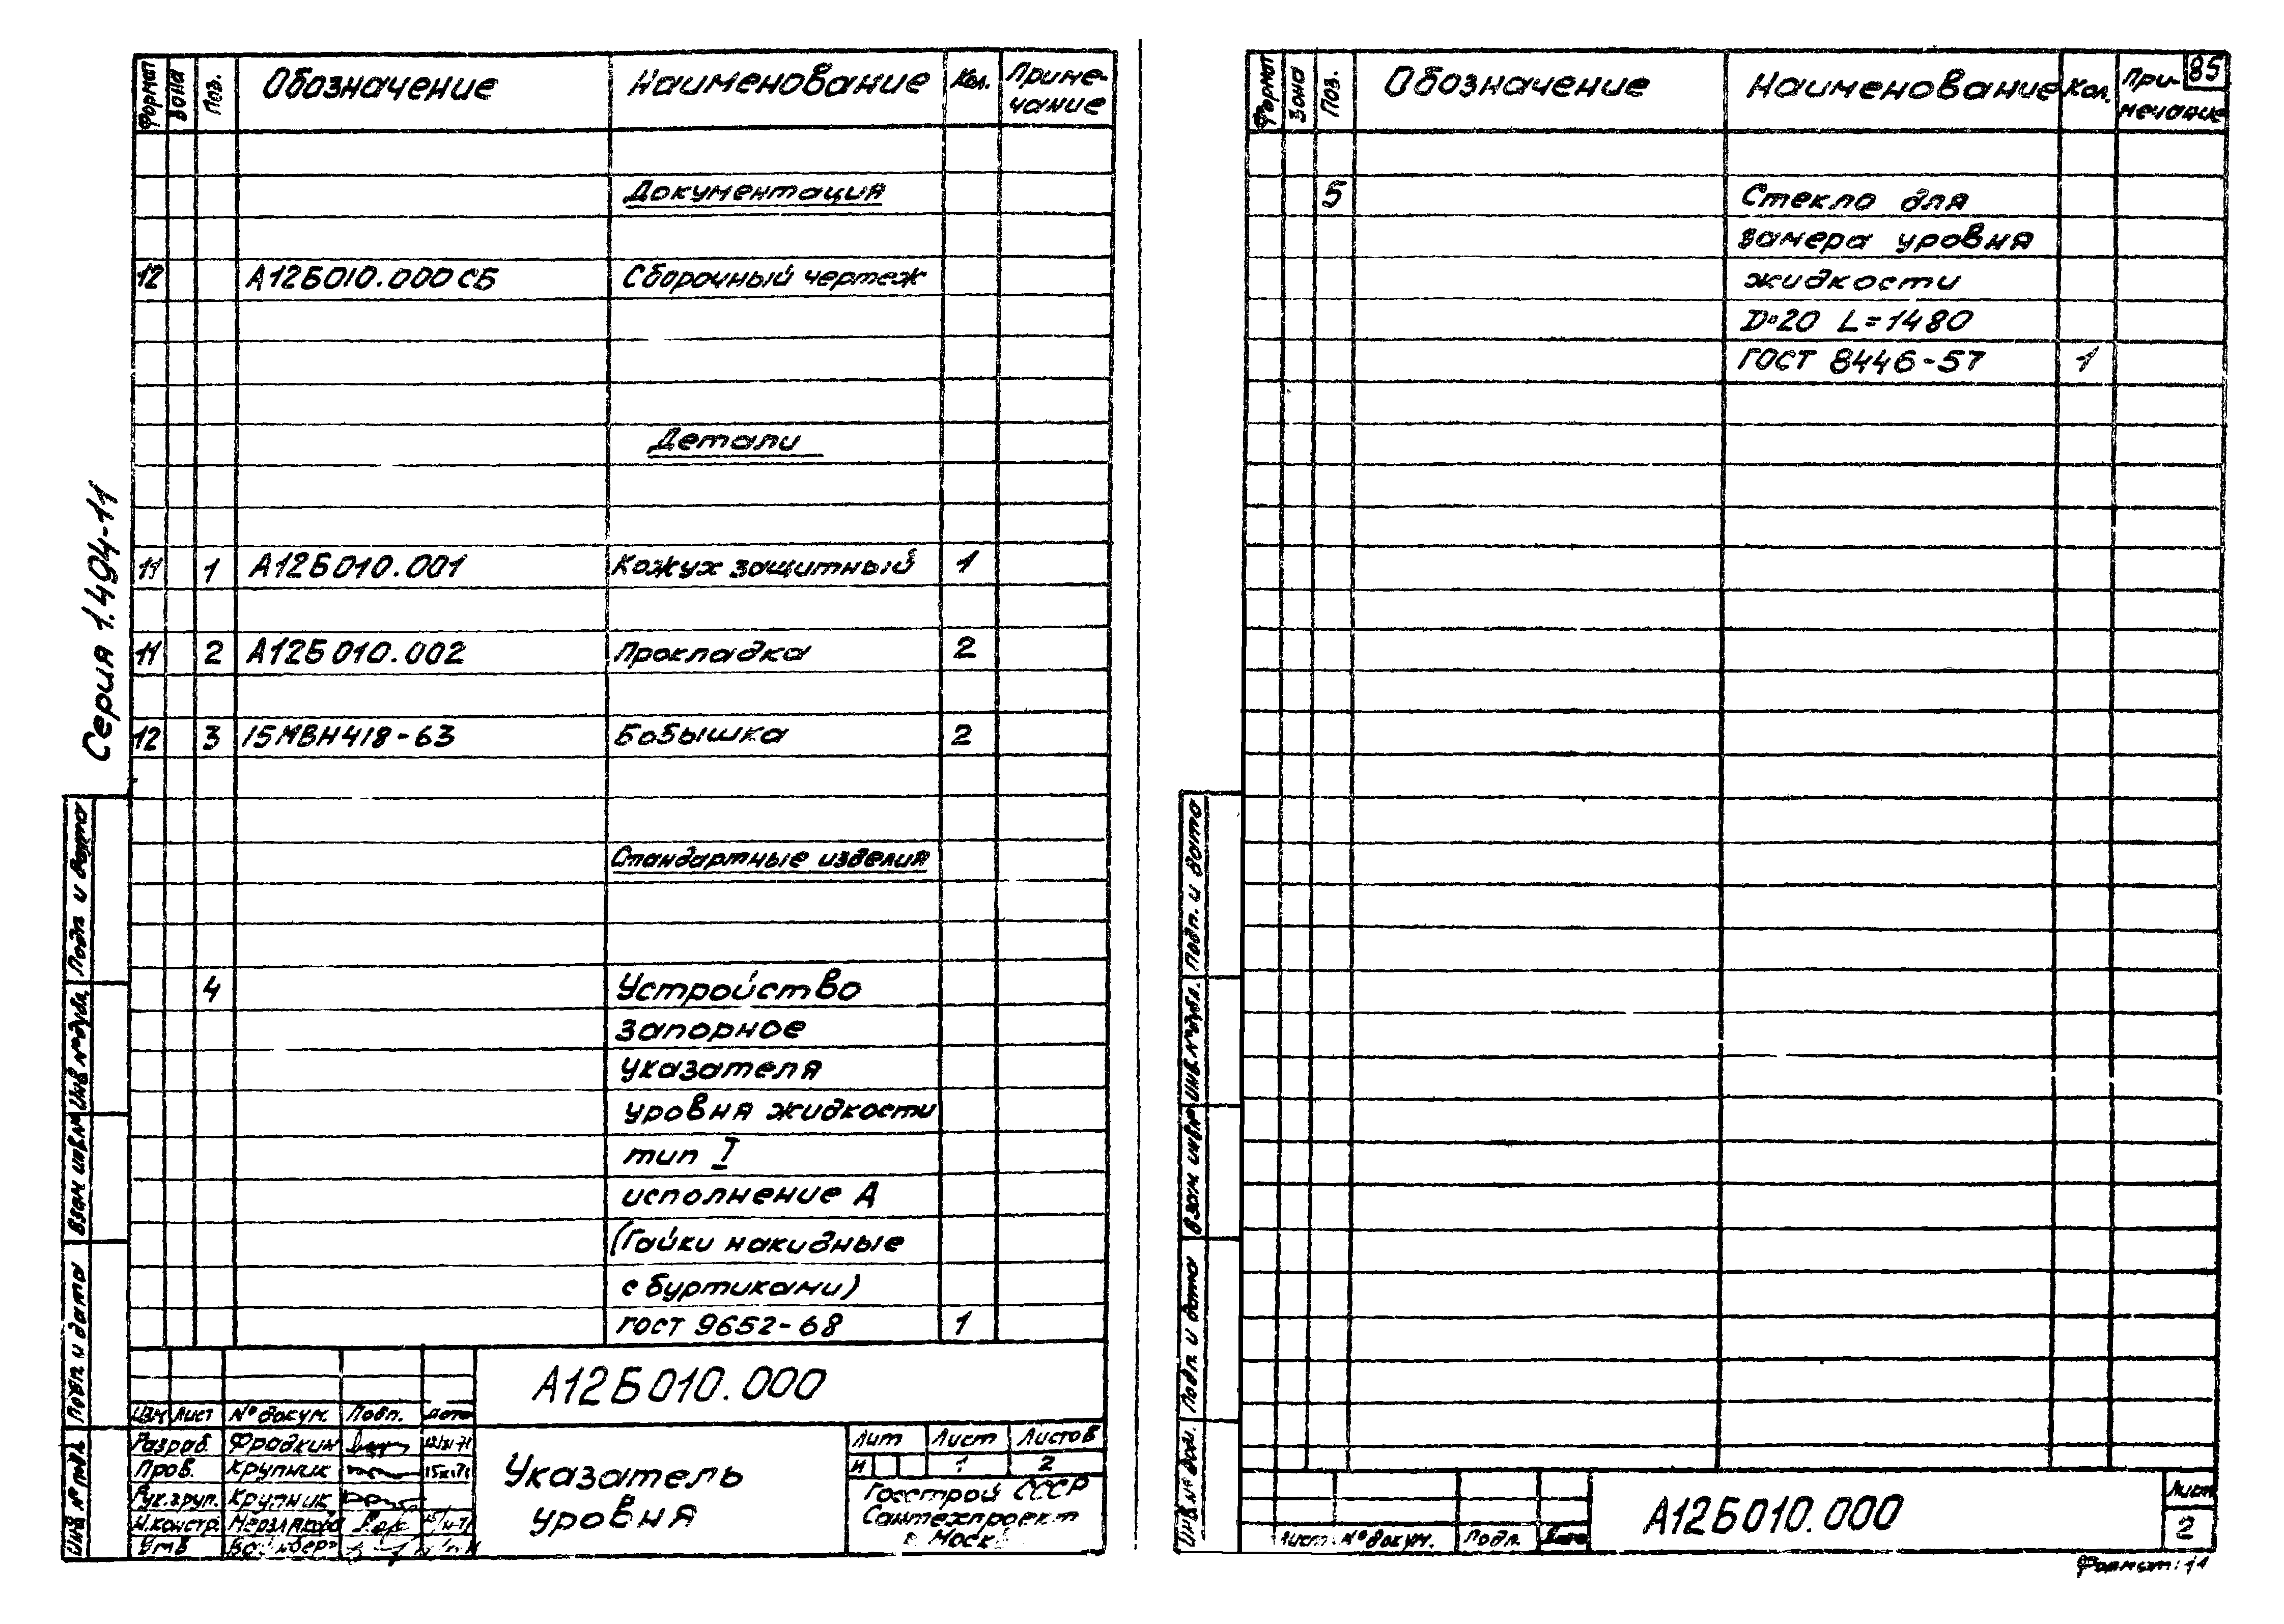 Серия 1.494-11
Формат Зона Поз. Обозначение Наименование Кол. Приме-
чание
Документация
12 А12Б010.000 СБ Сборочный чертеж
Детали
11 1 А12Б010.001 Кожух защитный 1
11 2 А12Б010.002 Прокладка 2
12 3 15МВН418-63 Бобышка 2
Стандартные изделия
4 Устройство
запорное
указателя
уровня жидкости
тип I
исполнение Д
(Гайки накидные
с буртиками)
ГОСТ 9652-68 1
Подп и дата
Инв №дубл.
Взам инв.№
Подп. и дата
Инв № подл.
А12Б010.000
Изм Лист № докум. Подп. Дата
Разраб. Фрадкин
Пров. Крупник
Рук.груп. Крупник
Н.констр.
Утв
Указатель
уровня
Лит Лист Листов
И 1 2
Госстрой СССР
Сантехпроект
г. Моск
85
Формат Зона Поз. Обозначение Наименование Кол. При-
мечание
5 Стекло для
замера уровня
жидкости
D=20 L=1480
ГОСТ 8446-57 1
Подп. и дата
Инв.№дубл.
Взам инв№
Подп. и дата
Лист № докум. Подп. Дата
А12Б010.000
Лист
2
Формат: 11